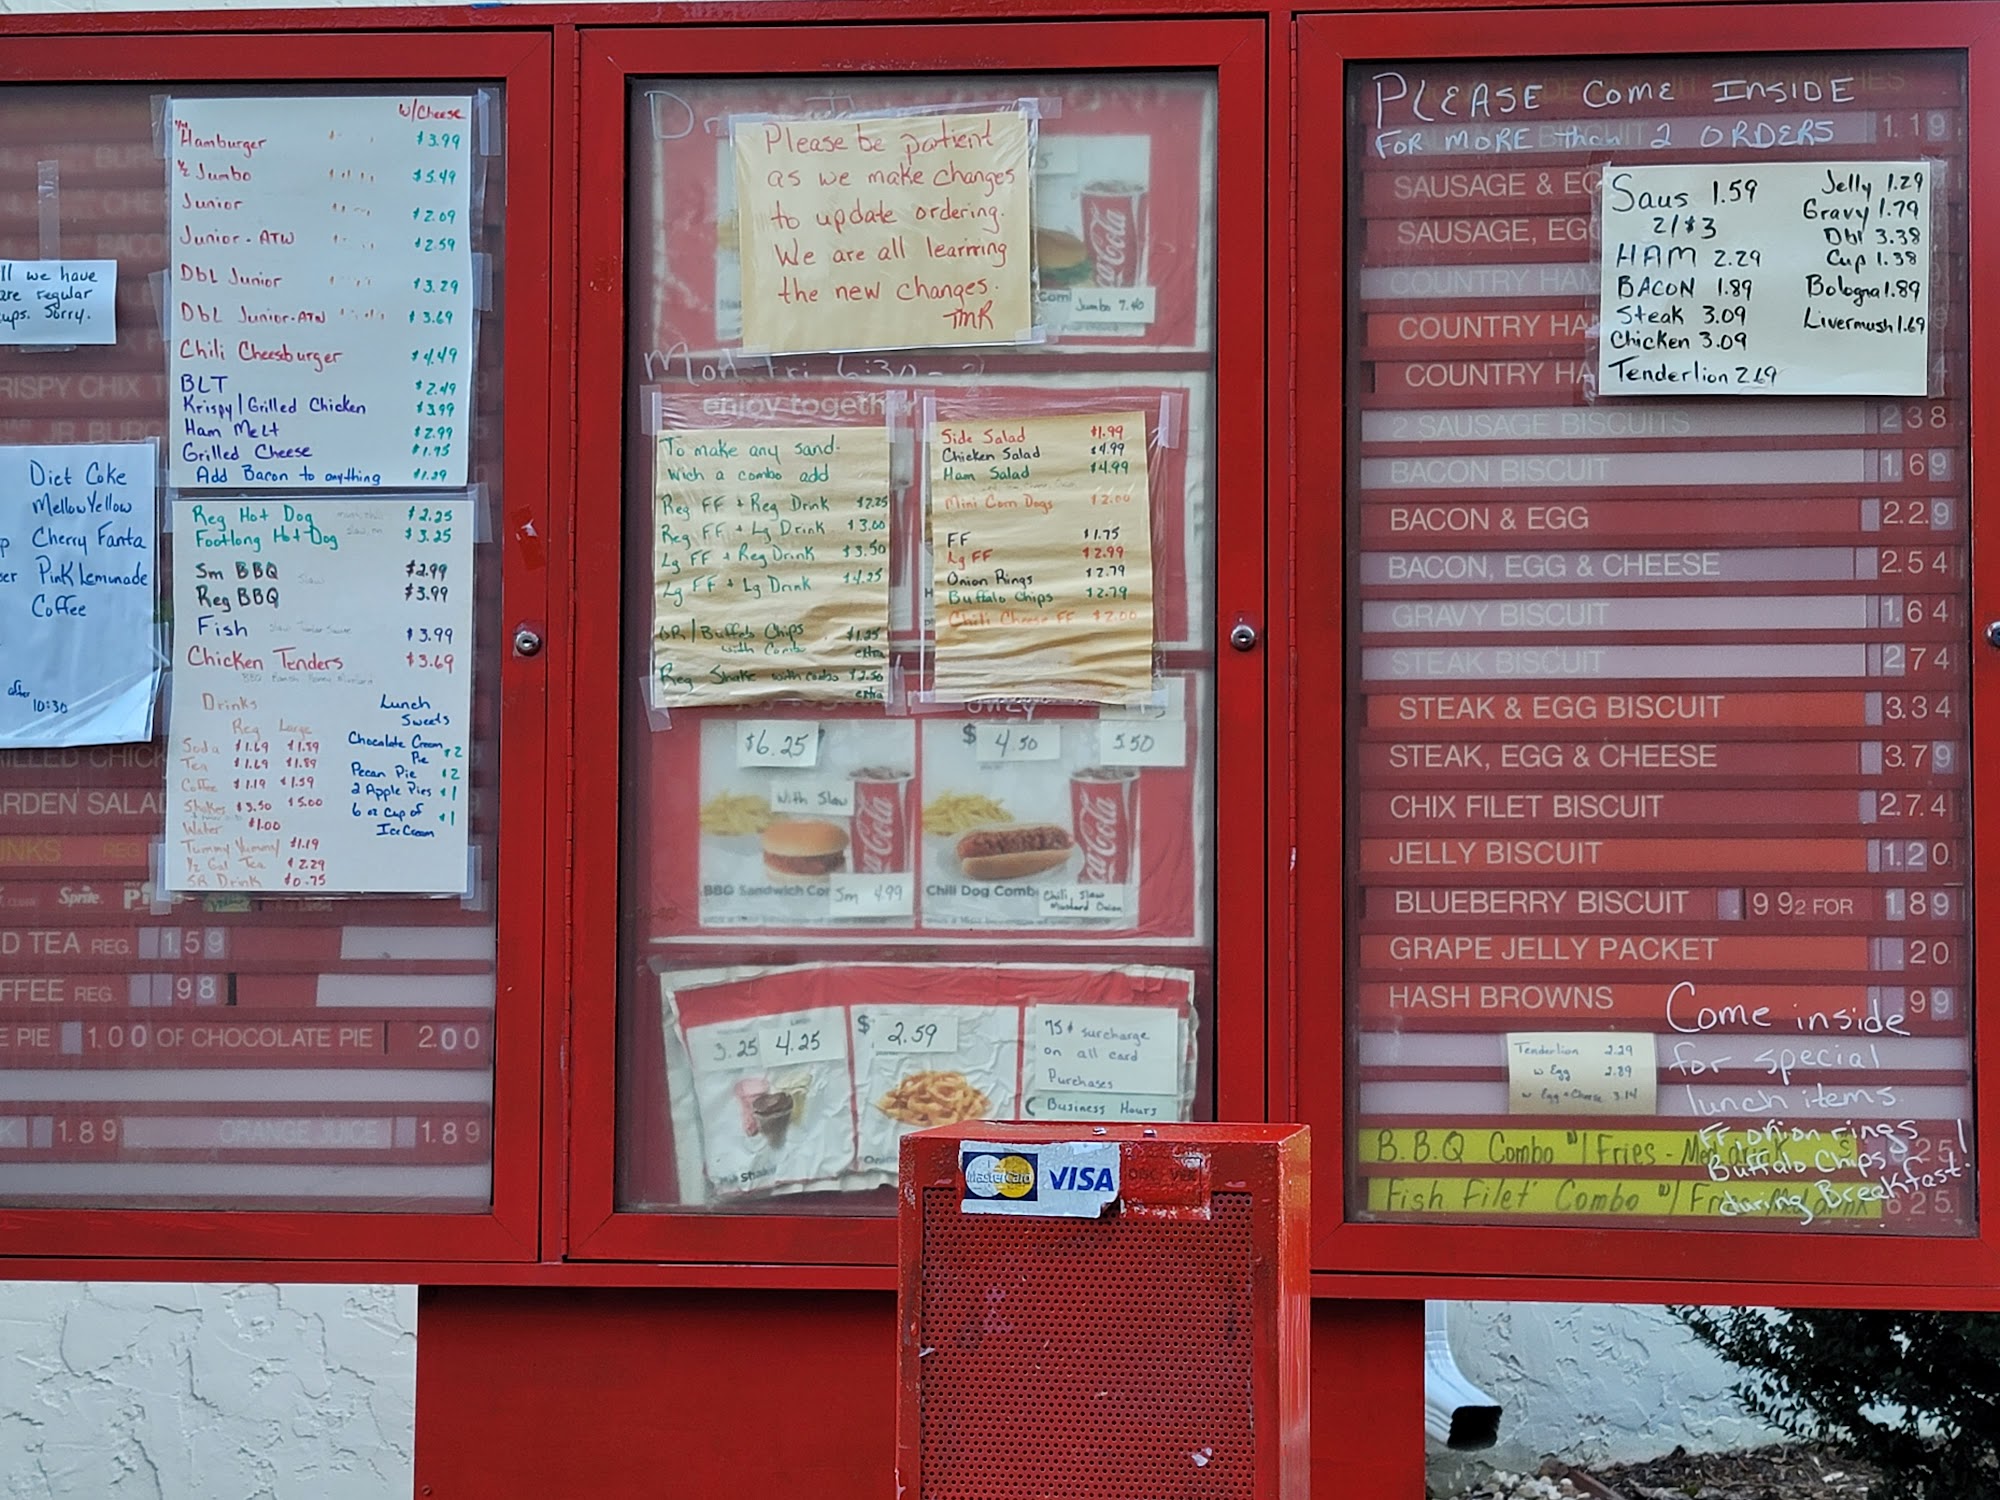 ll we have
are regular
ups. Sorry.
RISPY CHIX
JR. BURG
Diet Coke
Mellow Yellow
Cherry Fanta
Pink Lemonade
Coffee
after
10:30
ARDEN SALAD
INKS REG
Sprite
D TEA REG. 1.59
FFEE REG. .98
E PIE 1.00 OR CHOCOLATE PIE 2.00
K 1.89 ORANGE JUICE 1.89
w/Cheese
Hamburger $3.99
1/2 Jumbo $5.49
Junior $2.09
Junior-ATW $2.59
Dbl Junior $3.29
Dbl Junior-ATW $3.69
Chili Cheesburger $4.49
BLT $2.49
Krispy/Grilled Chicken $3.99
Ham Melt $2.99
Grilled Cheese $1.75
Add Bacon to anything $1.29
Reg Hot Dog $2.25
Footlong Hot Dog $3.25
Sm BBQ Slaw $2.99
Reg BBQ $3.99
Fish $3.99
Chicken Tenders $3.69
BBQ Ranch Honey Mustard
Drinks
Reg Large
Soda $1.69 $1.89
Tea $1.69 $1.89
Coffee $1.19 $1.59
Shakes $3.50 $5.00
Water $1.00
Tummy Yummy $1.19
1/2 Gal Tea $2.29
SR Drink $0.75
Lunch
Sweets
Chocolate Cream
Pie $2
Pecan Pie $2
2 Apple Pies $1
6 oz Cup of $1
Ice Cream
Please be patient
as we make changes
to update ordering.
We are all learning
the new changes.
TMR
Jumbo 7.40
Coca-Cola
Mon Fri 6:30 -
enjoy together
To make any sand-
wich a combo add
Reg FF + Reg Drink $2.25
Reg FF + Lg Drink $3.00
Lg FF + Reg Drink $3.50
Lg FF + Lg Drink $4.25
OR/Buffalo Chips $1.25
with Combo extra
Reg Shake with combo $2.50
extra
Side Salad $1.99
Chicken Salad $4.99
Ham Salad $4.99
Mini Corn Dogs $2.00
FF $1.75
Lg FF $2.99
Onion Rings $2.79
Buffalo Chips $2.79
Chili Cheese FF $2.00
$6.25
With Slaw
Coca-Cola
BBQ Sandwich Co Sm 4.99
$ 4.50 5.50
Coca-Cola
Chili Dog Comb Chili, Slaw
Mustard Onion
3.25 4.25
Shak
$ 2.59
Onio
75¢ surcharge
on all card
Purchases
Business Hours
MasterCard VISA
PLEASE COME INSIDE
FOR MORE than 2 ORDERS
1.19
SAUSAGE & EG
SAUSAGE, EGG
COUNTRY HAM
COUNTRY HA
COUNTRY HA
Saus 1.59
2/$3
HAM 2.29
BACON 1.89
Steak 3.09
Chicken 3.09
Tenderlion 2.69
Jelly 1.29
Gravy 1.79
Dbl 3.38
Cup 1.38
Bologna 1.89
Livermush 1.69
2 SAUSAGE BISCUITS 2.38
BACON BISCUIT 1.69
BACON & EGG 2.29
BACON, EGG & CHEESE 2.54
GRAVY BISCUIT 1.64
STEAK BISCUIT 2.74
STEAK & EGG BISCUIT 3.34
STEAK, EGG & CHEESE 3.79
CHIX FILET BISCUIT 2.74
JELLY BISCUIT 1.20
BLUEBERRY BISCUIT .99 2 FOR 1.89
GRAPE JELLY PACKET .20
HASH BROWNS .99
Tenderlion 2.29
w Egg 2.89
w Egg & Cheese 3.14
Come inside
for special
lunch items
FF onion rings
Buffalo Chips
during Breakfast!
B.B.Q Combo w/ Fries - Med 25
Fish Filet Combo w/ Fries 625